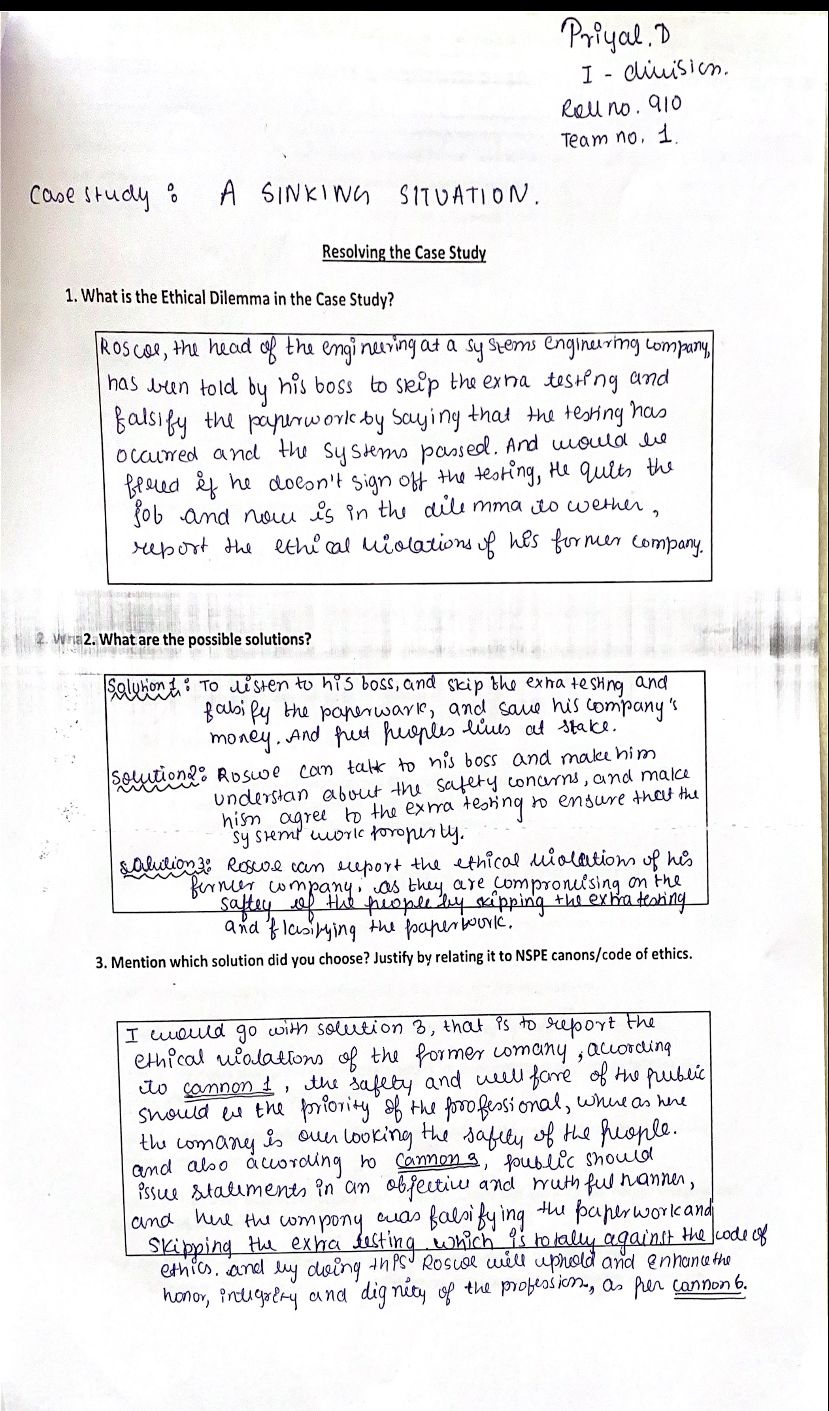 Priyal.D
I - division.
Roll no. 910
Team no. 1.
Case study : A SINKING SITUATION.
Resolving the Case Study
1. What is the Ethical Dilemma in the Case Study?
Roscoe, the head of the engineering at a systems engineering company,
has been told by his boss to skip the extra testing and
falsify the paperwork by saying that the testing has
occurred and the systems passed. And would be
fired if he doesn't sign off the testing, He quits the
job and now is in the dilemma to wether,
report the ethical violations of his former company.
2. What are the possible solutions?
Solution 1: To listen to his boss, and skip the extra testing and
falsify the paperwark, and save his company's
money. And put peoples lives at stake.
Solution 2: Roscoe can talk to his boss and make him
understan about the safety concerns, and make
him agree to the extra testing to ensure that the
systems work properly.
Solution 3: Roscoe can report the ethical violations of his
former company, as they are compromising on the
saftey of the people by skipping the extra testing
and flasifying the paperwork.
3. Mention which solution did you choose? Justify by relating it to NSPE canons/code of ethics.
I would go with solution 3, that is to report the
ethical violations of the former comany, according
to cannon 1, the safety and well fare of the public
should be the priority of the professional, where as here
the comany is over looking the safety of the people.
and also according to cannon 3, public should
issue statements in an objective and truthful manner,
and here the company was falsifying the paperwork and
skipping the extra testing which is totally against the code of
ethics. and by doing this Roscoe will uphold and enhance the
honor, integrity and dignity of the profession, as per cannon 6.